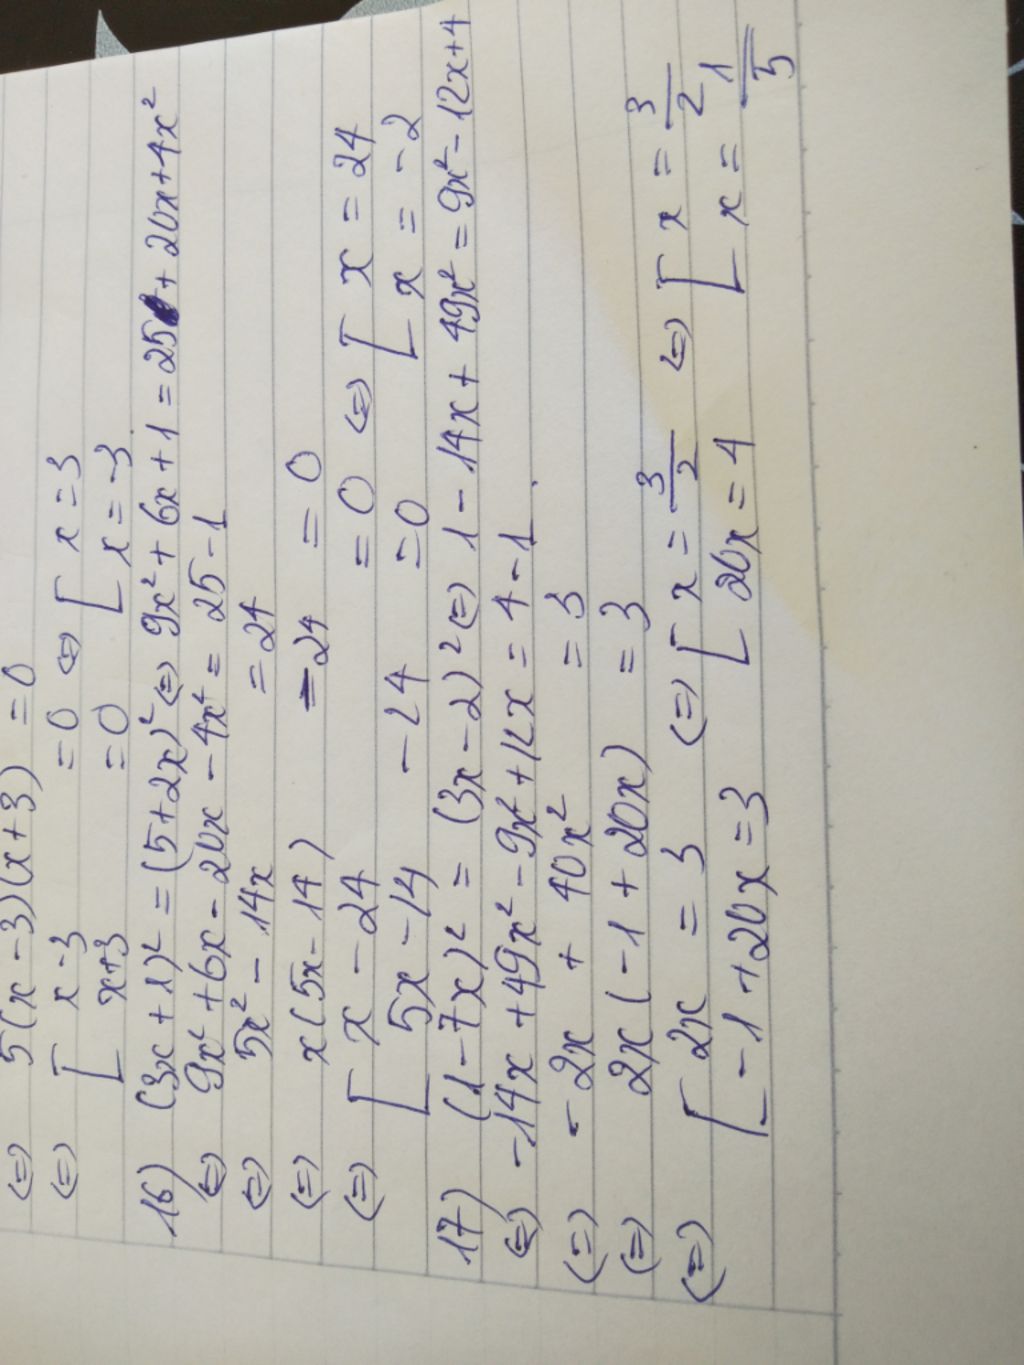 ⇔ 5(x-3)(x+3) = 0
⇔ [ x-3 = 0 ⇔ [ x = 3
[ x+3 = 0 [ x = -3
16) (3x+1)² = (5+2x)² ⇔ 9x² + 6x + 1 = 25 + 20x + 4x²
⇔ 9x² + 6x - 20x - 4x² = 25 - 1
⇔ 5x² - 14x = 24
⇔ x(5x - 14) - 24 = 0
⇔ [ x - 24 = 0 ⇔ [ x = 24
[ 5x - 14 - 24 = 0 [ x = -2
17) (1-7x)² = (3x-2)² ⇔ 1 - 14x + 49x² = 9x² - 12x + 4
⇔ -14x + 49x² - 9x² + 12x = 4 - 1
⇔ -2x + 40x² = 3
⇔ 2x(-1 + 20x) = 3
⇔ [ 2x = 3 ⇔ [ x = 3/2 ⇔ [ x = 3/2
[ -1 + 20x = 3 [ 20x = 4 [ x = 1/5